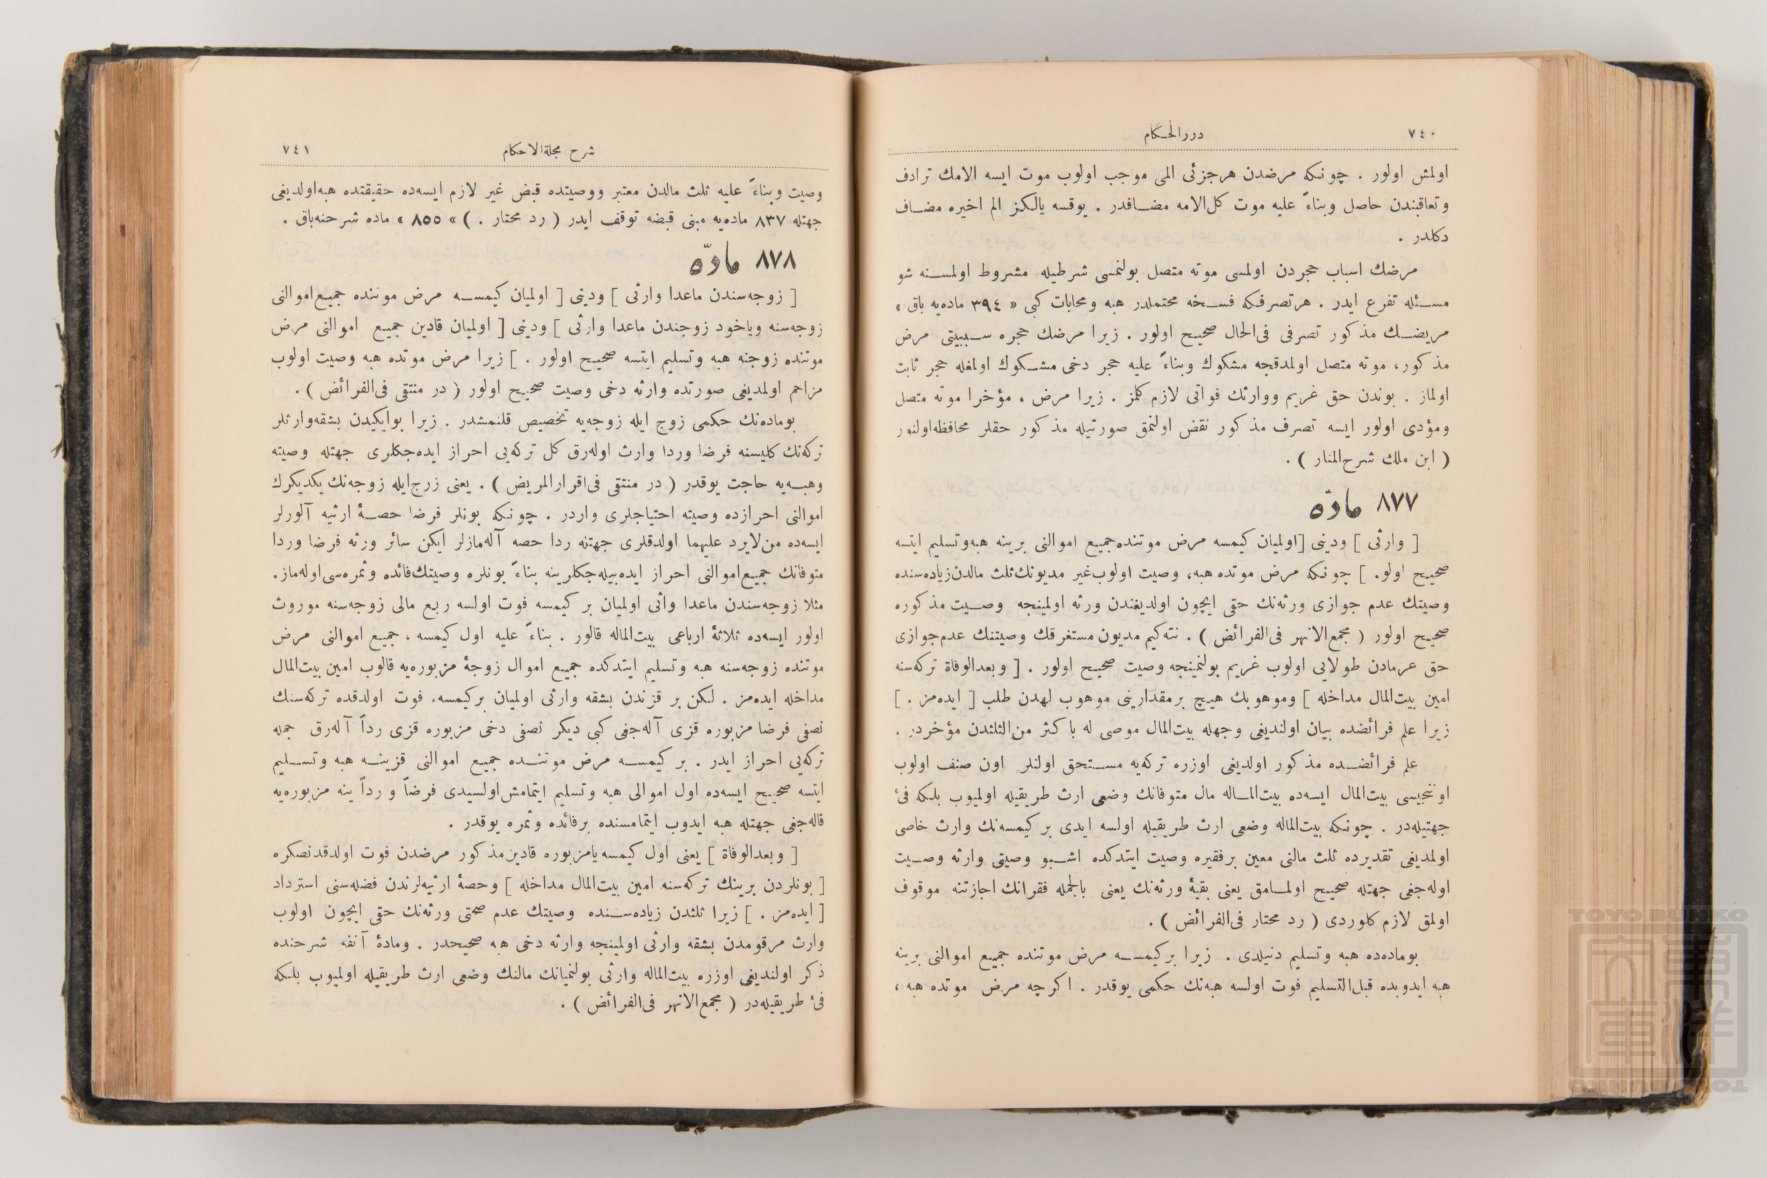 ٧٤٠
دررالحكام
اولمش اولور . چونكه مرضدن هرجزئى المى موجب اولوب موت ايسه الامك ترادف
وتعاقبندن حاصل وبناءً عليه موت كل‌الامه مضـافدر . يوقسه يالكز الم اخيره مضـاف
دكلدر .
مرضك اسباب حجردن اولمسى موته متصل بولنمسى شرطيله مشروط اولمسـنه شو
مسـئله تفرع ايدر . هرتصرفكه فسـخه محتملدر هبه ومحابات كبى « ٣٩٤ ماده‌يه باق »
مريضـك مذكور تصرفى فى‌الحال صحيح اولور . زيرا مرضك حجره سـببيتى مرض
مذكور، موته متصل اولمدقجه مشكوك وبناءً عليه حجر دخى مشـكوك اولمغله حجر ثابت
اولماز . بوندن حق غريم ووارثك فواتى لازم كلمز . زيرا مرض ، مؤخرا موته متصل
ومؤدى اولور ايسه تصرف مذكور نقض اولنمق صورتيله مذكور حقلر محافظه‌اولنور
( ابن ملك شرح‌المنار ) .
٨٧٧ مادّه
[ وارثى ] ودينى [اولميان كيمسه مرض موتنده‌جميع اموالنى برينه هبه‌وتسليم ايتسه
صحيح اولو. ] چونكه مرض موتده هبه، وصيت اولوب‌غير مديونك‌ثلث مالدن‌زياده‌سنده
وصيتك عدم جوازى ورثه‌نك حقى ايچون اولديغندن ورثه اولمينجه وصـيت مذكوره
صحيح اولور ( مجمع‌الانهر فى‌الفرائض ) . نته‌كيم مديون مستغرقك وصيتنك عدم‌جوازى
حق غرمادن طولايى اولوب غريم بولنمينجه وصيت صحيح اولور . [ وبعدالوفاة تركه‌سنه
امين بيت‌المال مداخله ] وموهوبك هيچ برمقدارينى موهوب لهدن طلب [ ايده‌مز . ]
زيرا علم فرائضده بيان اولنديغى وجهله بيت‌المال موصى له باكثر من‌الثلثدن مؤخردر .
علم فرائضـده مذكور اولديغى اوزره تركه‌يه مسـتحق اولنلر اون صنف اولوب
اوننجيسى بيت‌المال ايسه‌ده بيت‌المـاله مال متوفانك وضعى ارث طريقيله اولميوب بلكه فئ
جهتيله‌در . چونكه بيت‌الماله وضعى ارث طريقيله اولسه ايدى بر كيمسه‌نك وارث خاصى
اولمديغى تقديرده ثلث مالنى معين برفقيره وصيت ايتدكده اشـبو وصيتى وارثه وصـيت
اوله‌جغى جهتله صحيح اولمـامق يعنى بقيۀ ورثه‌نك يعنى بالجمله فقرانك اجازتنه موقوف
اولمق لازم كلوردى ( رد مختار فى‌الفرائض ) .
بوماده‌ده هبه وتسليم دنيلدى . زيرا بركيمسـه مرض موتنده جميع اموالنى برينه
هبه ايدوبده قبل‌التسليم فوت اولسه هبه‌نك حكمى يوقدر . اكرچه مرض موتده هبه ،
شرح مجلة‌الاحكام
٧٤١
وصيت وبناءً عليه ثلث مالدن معتبر ووصيتده قبض غير لازم ايسه‌ده حقيقتده هبه‌اولديغى
جهتله ٨٣٧ ماده‌يه مبنى قبضه توقف ايدر ( رد مختار . ) « ٨٥٥ » ماده شرحنه‌باق .
٨٧٨ مادّه
[ زوجه‌سندن ماعدا وارثى ] ودينى [ اولميان كيمسـه مرض موتنده جميع‌اموالنى
زوجه‌سنه وياخود زوجندن ماعدا وارثى ] ودينى [ اولميان قادين جميع اموالنى مرض
موتنده زوجنه هبه وتسليم ايتسه صحيح اولور . ] زيرا مرض موتده هبه وصيت اولوب
مزاحم اولمديغى صورتده وارثه دخى وصيت صحيح اولور ( در منتقى فى‌الفرائض ) .
بوماده‌نك حكمى زوج ايله زوجه‌يه تخصيص قلنمشدر . زيرا بوايكيدن بشقه‌وارثلر
تركه‌نك كليسنه فرضا وردا وارث اوله‌رق كل تركه‌يى احراز ايده‌جكلرى جهتله وصيته
وهبـه‌يه حاجت يوقدر ( در منتقى فى‌اقرارالمريض ) . يعنى زرج‌ايله زوجه‌نك يكديكرك
اموالنى احرازده وصيته احتياجلرى واردر . چونكه بونلر فرضا حصـۀ ارثيه آلورلر
ايسه‌ده من‌لايرد عليهما اولدقلرى جهتله ردا حصه آله‌مازلر ايكن سائر ورثه فرضا وردا
متوفانك جميع‌اموالنى احراز ايده‌بيله‌جكلرينه بناءً بونلره وصيتك‌فائده وثمره‌سى‌اوله‌ماز.
مثلا زوجه‌سندن ماعدا واثى اولميان بر كيمسه فوت اولسه ربع مالى زوجه‌سنه موروث
اولور ايسه‌ده ثلاثۀ ارباعى بيت‌الماله قالور . بناءً عليه اول كيمسه ، جميع اموالنى مرض
موتنده زوجه‌سنه هبه وتسليم ايتدكده جميع اموال زوجۀ مزبوره‌يه قالوب امين بيت‌المال
مداخله ايده‌مز . لكن بر قزندن بشقه وارثى اولميان بركيمسه، فوت اولدقده تركه‌سنك
نصفى فرضا مزبوره قزى آله‌جغى كبى ديكر نصفى دخى مزبوره قزى رداً آله‌رق جمله
تركه‌يى احراز ايدر . بر كيمسـه مرض موتنـده جميع اموالنى قزينـه هبه وتسـليم
ايتسه صحيح ايسه‌ده اول اموالى هبه وتسليم ايتمامش‌اولسيدى فرضاً و رداً ينه مزبوره‌يه
قاله‌جغى جهتله هبه ايدوب ايتمامسنده برفائده وثمره يوقدر .
[ وبعدالوفاة ] يعنى اول كيمسه يامزبوره قادين‌مذكور مرضدن فوت اولدقدنصكره
[ بونلردن برينك تركه‌سنه امين بيت‌المال مداخله ] وحصۀ ارثيه‌لرندن فضله‌سنى استرداد
[ ايده‌مز . ] زيرا ثلثدن زياده‌سـنده وصيتك عدم صحتى ورثه‌نك حقى ايچون اولوب
وارث مرقومدن بشقه وارثى اولمينجه وارثه دخى هبه صحيحدر . ومادۀ آنفه شرحنده
ذكر اولنديغى اوزره بيت‌الماله وارثى بولنميانك مالنك وضعى ارث طريقيله اولميوب بلكه
فئ طريقيله‌در ( مجمع‌الانهر فى‌الفرائض ) .
TOYO BUNKO
東洋文庫